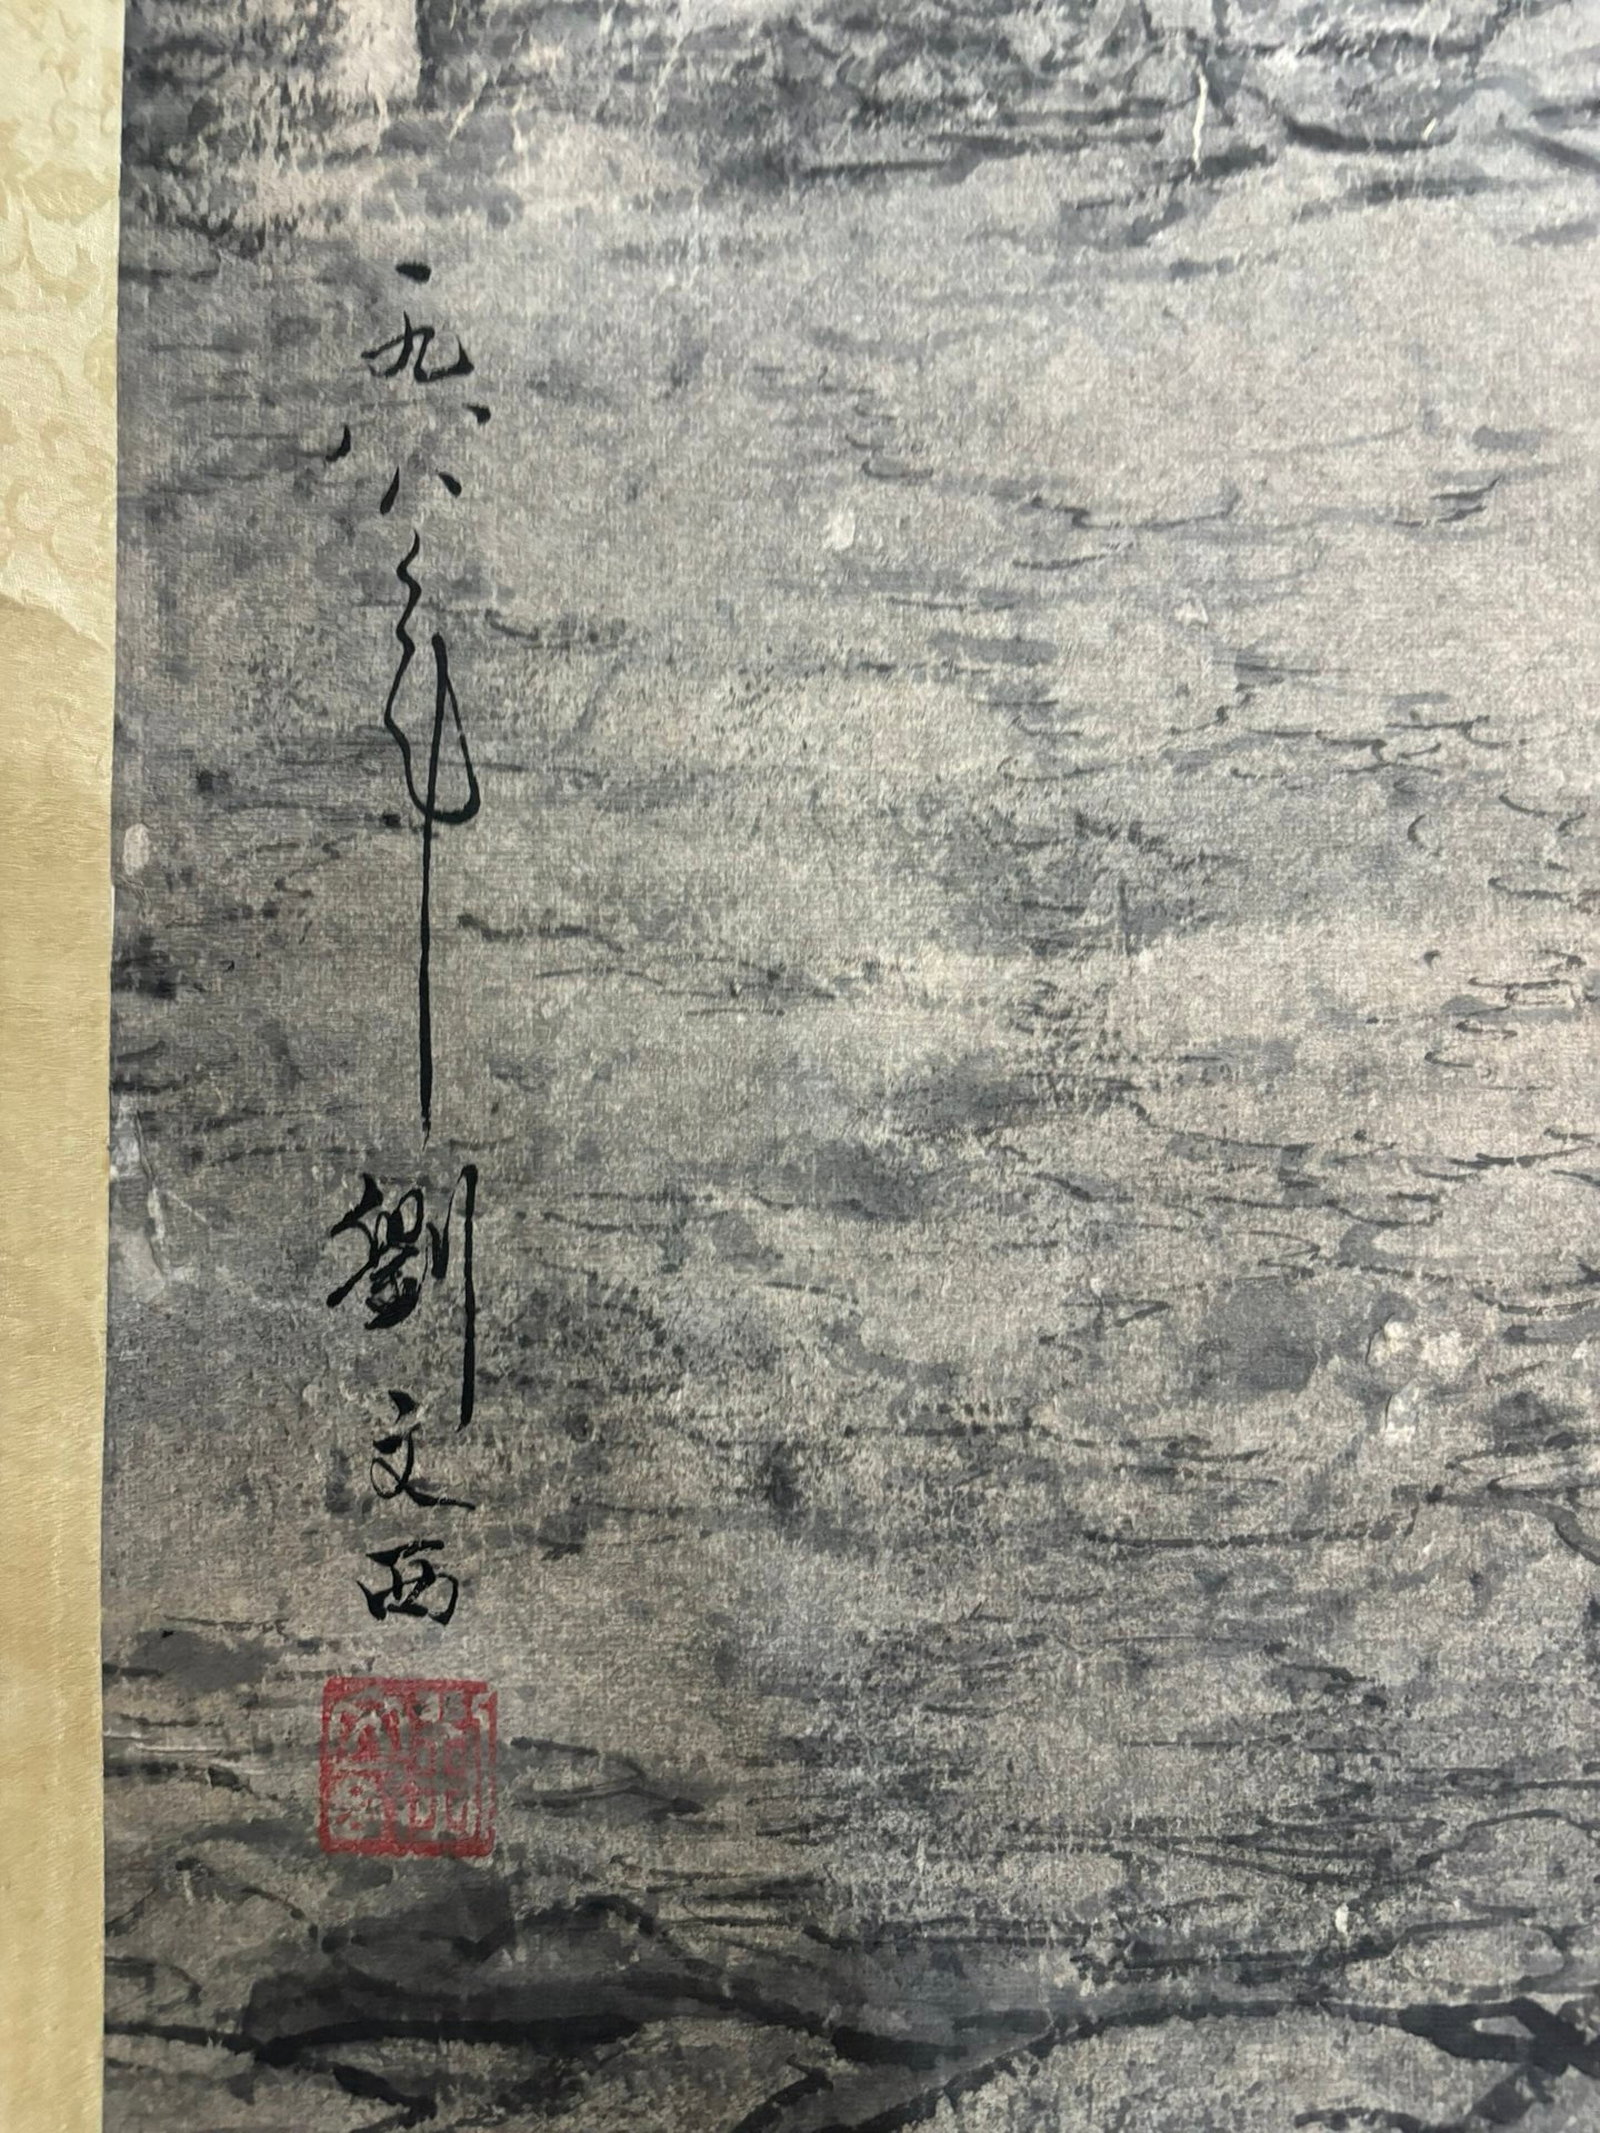 一九八八年劉文西